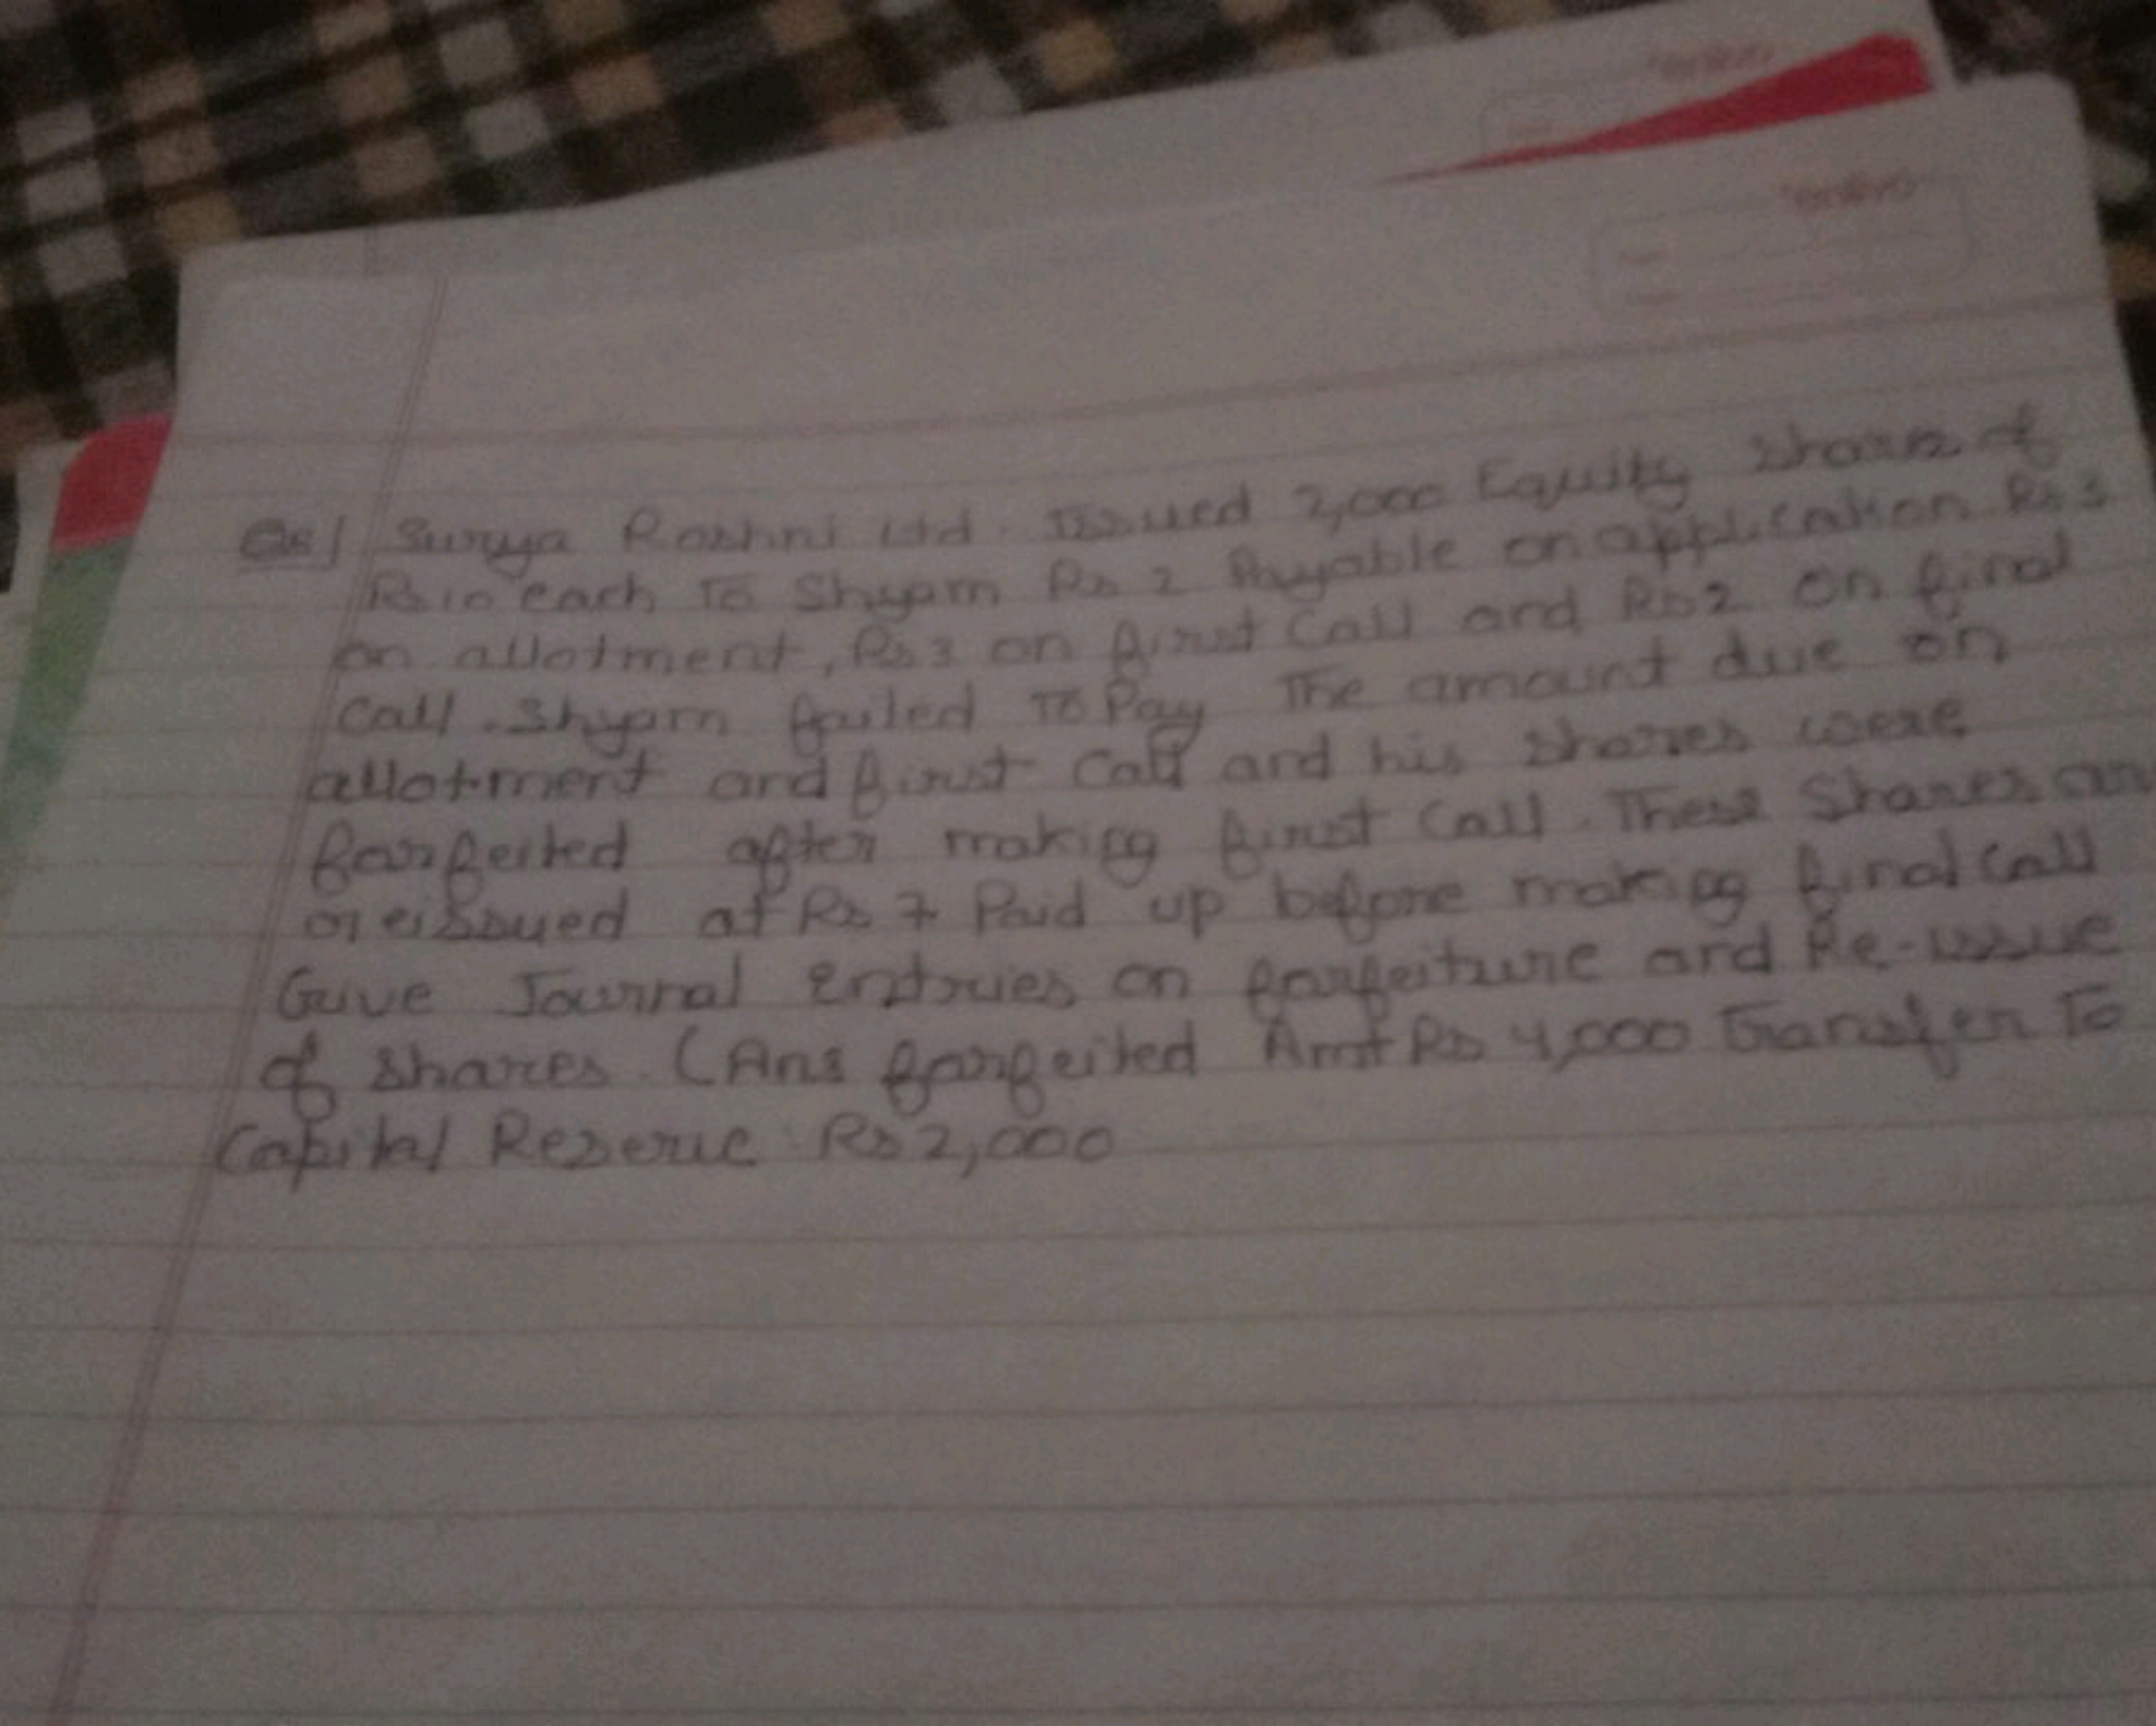 Q8] Surya Roshni Ltd. Issued 2,000 Equity share of
Rs 10 each To Shyam Rs 2 Payable on application Rs 3
on allotment, Rs 3 on first Call and Rs 2 on final
Call. Shyam failed To Pay The amount due on
allotment and first Call and his shares were
forfeited after making first Call. These Shares are
reissued at Rs 7 Paid up before making final Call
Give Journal entries on forfeiture and Re-issue
of shares. (Ans forfeited Amt Rs 4,000 Transfer To
Capital Reserve Rs 2,000